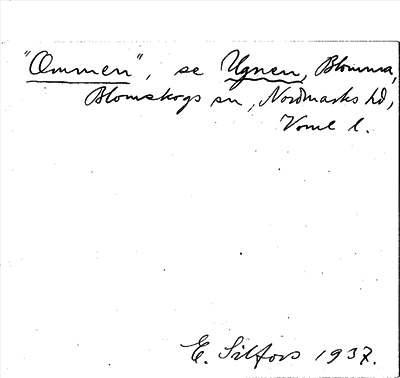 "Ommen", se Ugnen, Blomma,
Blomskogs sn, Nordmarks hd,
Verml l.
E. Silfors 1937.